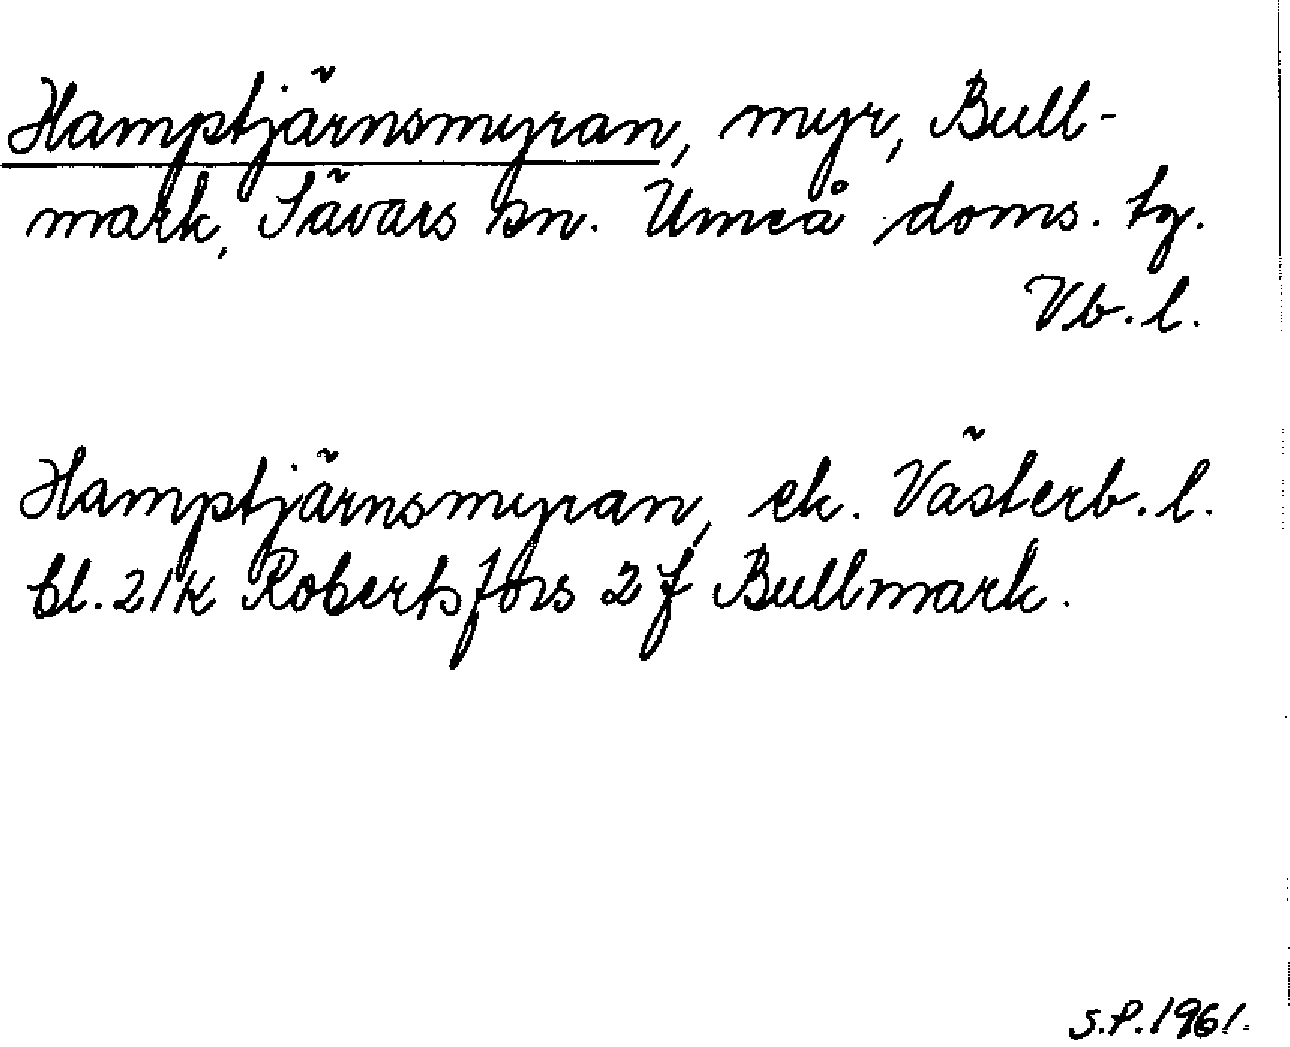 Hamptjärnsmyran, myr, Bull-
mark, Sävars sn. Umeå doms. tg.
Vb. l.
Hamptjärnsmyran, ek. Västerb. l.
bl. 21K Robertsfors 2 f Bullmark.
S.P. 1961.